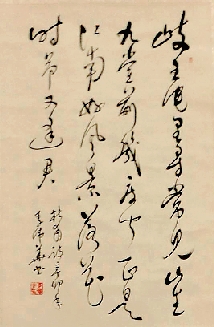 岐王宅里寻常见崔
九堂前几度闻正是
江南好风景落花
时节又逢君
杜甫诗辛卯年